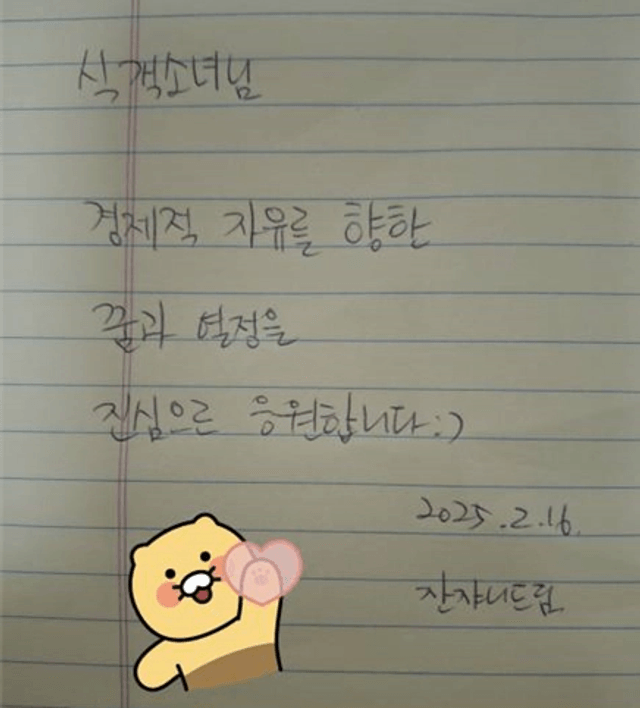 식객소녀님
경제적 자유를 향한
꿈과 열정을
진심으로 응원합니다:)
2025.2.16.
잔쟈니드림